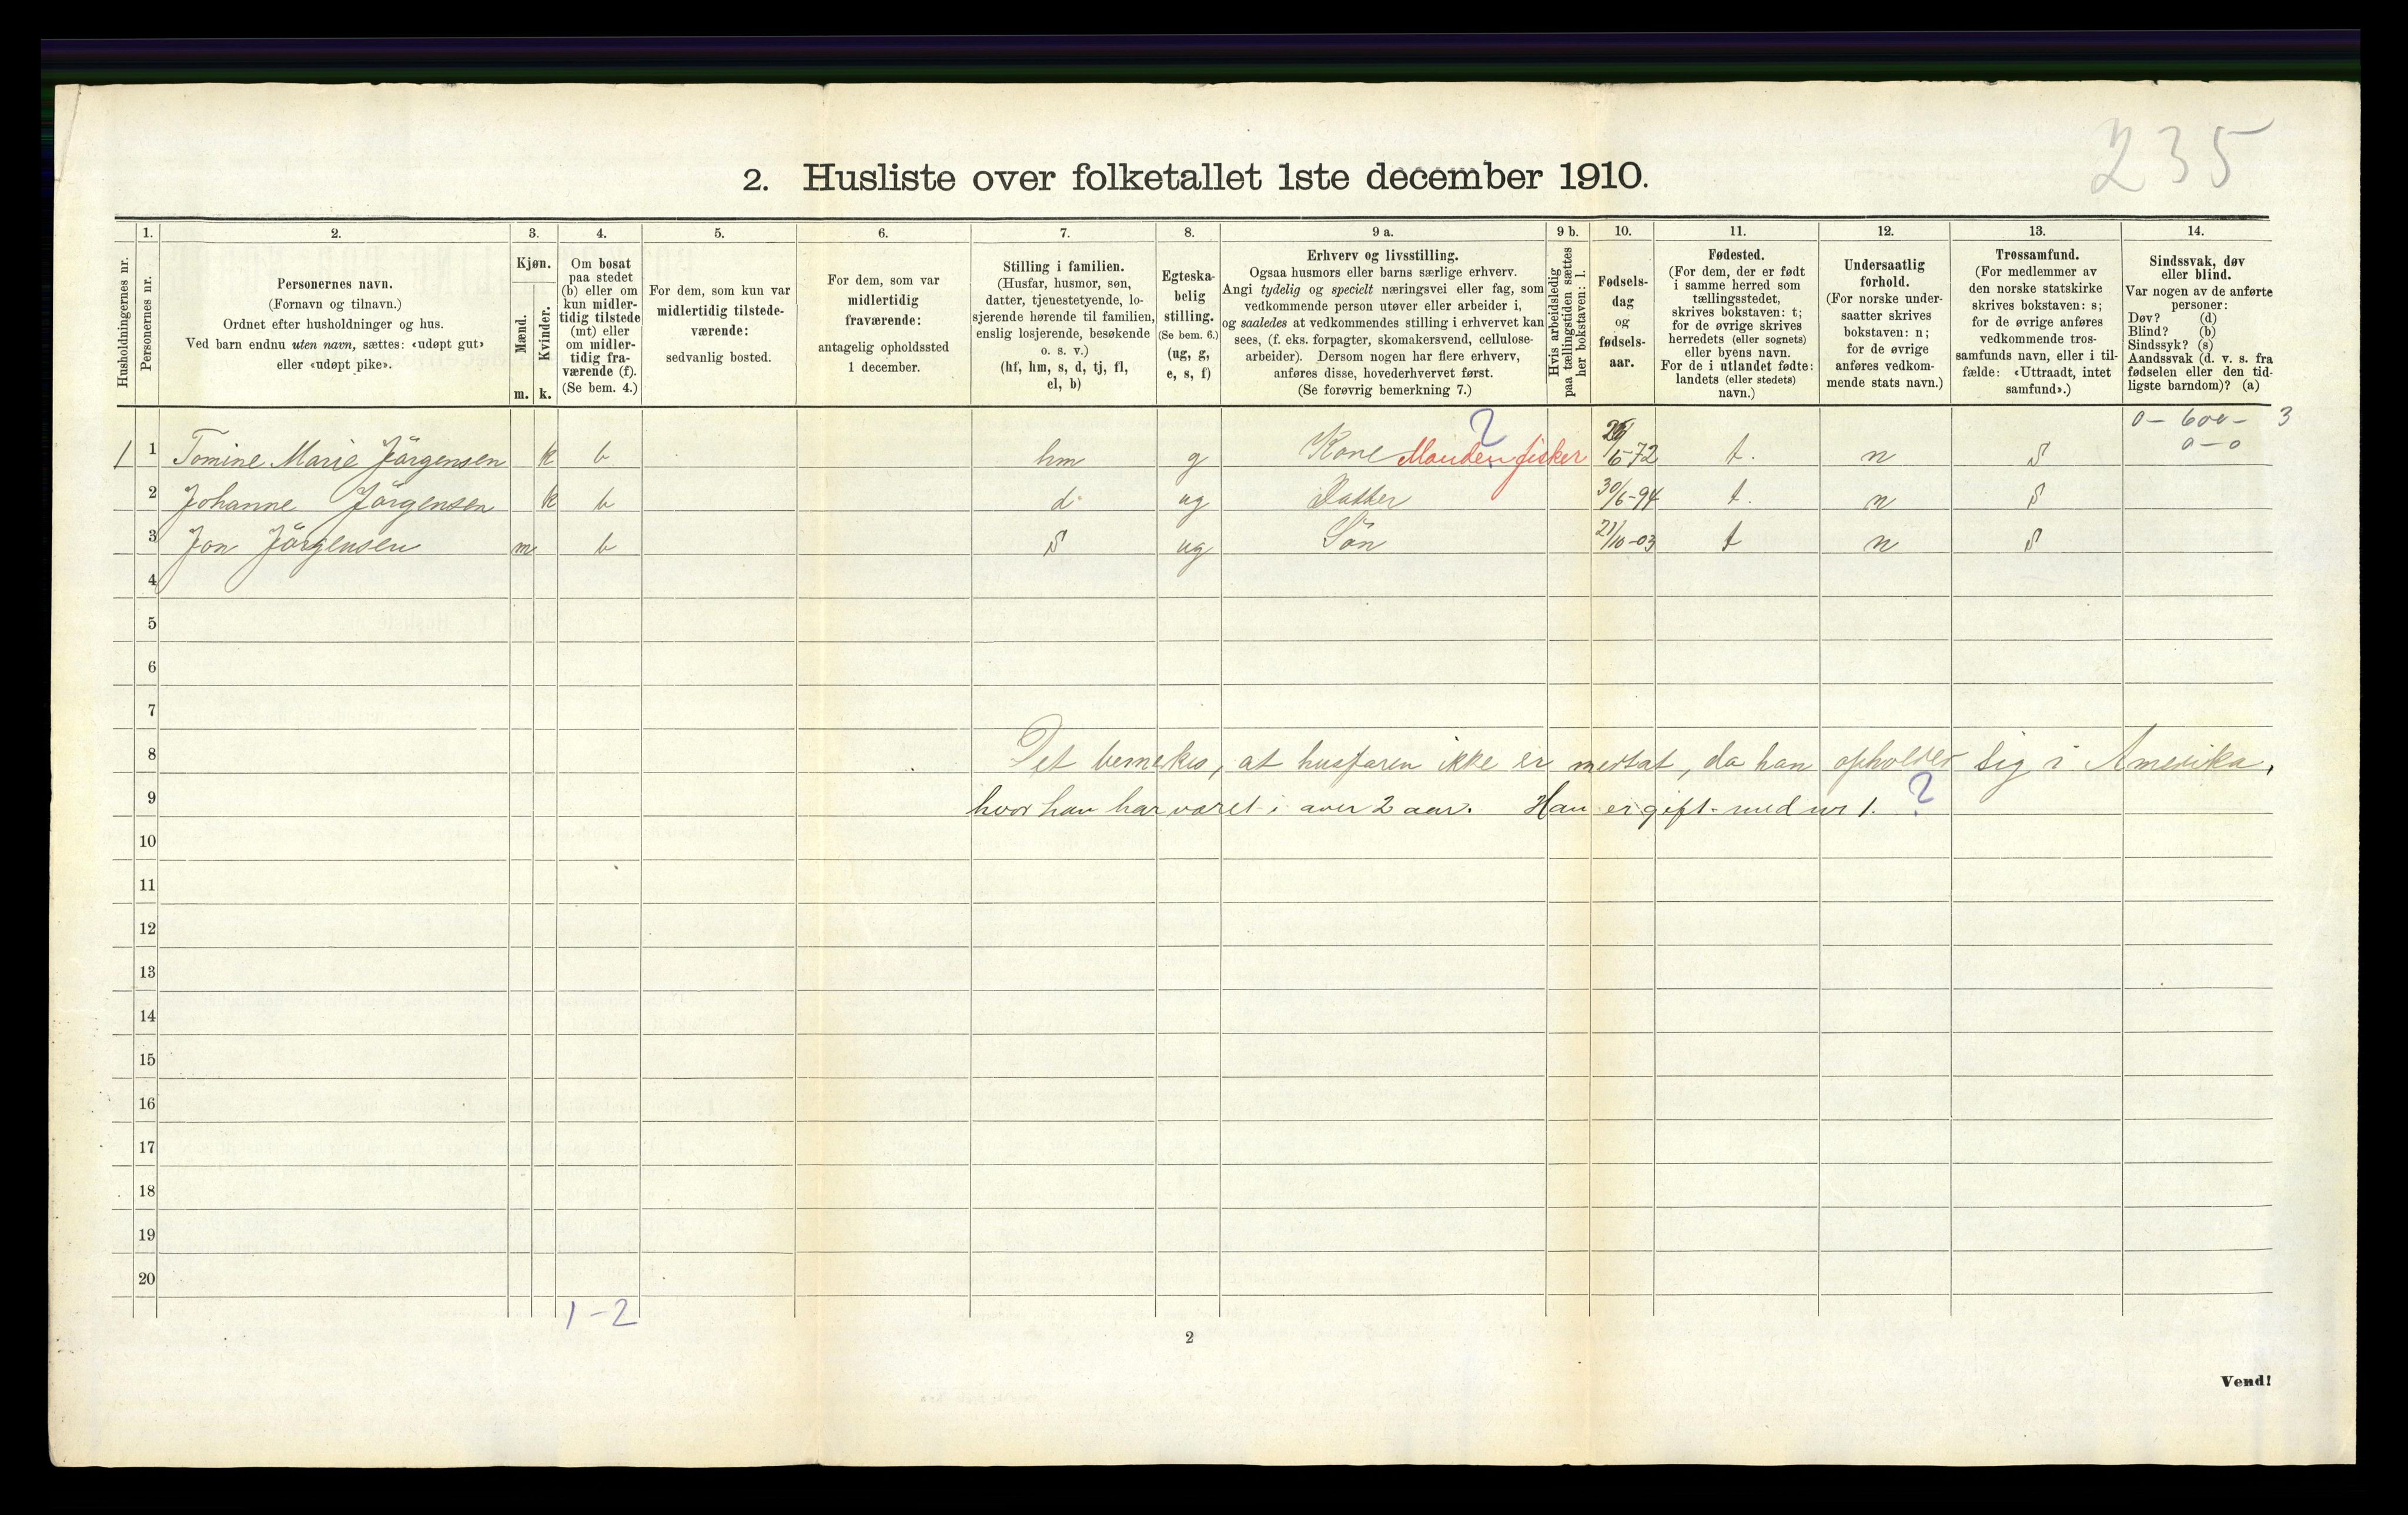 235
2. Husliste over folketallet 1ste december 1910.
Husholdningernes nr.
1.
Personernes nr.
2.
Personernes navn.
(Fornavn og tilnavn.)
Ordnet efter husholdninger og hus.
Ved barn endnu uten navn, sættes: «udøpt gut»
eller «udøpt pike».
3.
Kjøn.
Mænd.
Kvinder.
m. k.
4.
Om bosat
paa stedet
(b) eller om
kun midler-
tidig tilstede
(mt) eller
om midler-
tidig fra-
værende (f).
(Se bem. 4.)
5.
For dem, som kun var
midlertidig tilstede-
værende:
sedvanlig bosted.
6.
For dem, som var
midlertidig
fraværende:
antagelig opholdssted
1 december.
7.
Stilling i familien.
(Husfar, husmor, søn,
datter, tjenestetyende, lo-
sjerende hørende til familien,
enslig losjerende, besøkende
o. s. v.)
(hf, hm, s, d, tj, fl,
el, b)
8.
Egteska-
belig
stilling.
(Se bem. 6.)
(ug, g,
e, s, f)
9 a.
Erhverv og livsstilling.
Ogsaa husmors eller barns særlige erhverv.
Angi tydelig og specielt næringsvei eller fag, som
vedkommende person utøver eller arbeider i,
og saaledes at vedkommendes stilling i erhvervet kan
sees, (f. eks. forpagter, skomakersvend, cellulose-
arbeider). Dersom nogen har flere erhverv,
anføres disse, hovederhvervet først.
(Se forøvrig bemerkning 7.)
9 b.
Hvis arbeidsledig
paa tællingstiden sættes
her bokstaven: l.
10.
Fødsels-
dag
og
fødsels-
aar.
11.
Fødested.
(For dem, der er født
i samme herred som
tællingsstedet,
skrives bokstaven: t;
for de øvrige skrives
herredets (eller sognets)
eller byens navn.
For de i utlandet fødte:
landets (eller stedets)
navn.)
12.
Undersaatlig
forhold.
(For norske under-
saatter skrives
bokstaven: n;
for de øvrige
anføres vedkom-
mende stats navn.)
13.
Trossamfund.
(For medlemmer av
den norske statskirke
skrives bokstaven: s;
for de øvrige anføres
vedkommende tros-
samfunds navn, eller i til-
fælde: «Uttraadt, intet
samfund».)
14.
Sindssvak, døv
eller blind.
Var nogen av de anførte
personer:
Døv? (d)
Blind? (b)
Sindssyk? (s)
Aandssvak (d. v. s. fra
fødselen eller den tid-
ligste barndom)? (a)
0 - 600 - 3
0 - 0
1 1 Tomine Marie Jörgensen k b hm g Kone Manden fisker ? /6-72 t. n S
2 Johanne Jörgensen k b d ug Datter 30/6-94 t. n S
3 Jon Jörgensen m b S ug Sön 21/10-03 t n S
4
5
6
7
8 Det bemerkes, at husfaren ikke er medtat, da han opholder sig i Amerika,
9 hvor han har været i over 2 aar. Han er gift med nr 1. ?
10
11
12
13
14
15
16
17
18
19
20
1-2
2
Vend!